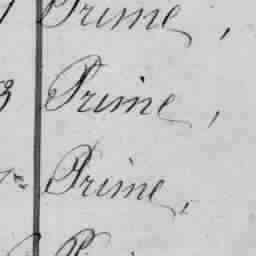 Prime,
3 Prime,
Prime,